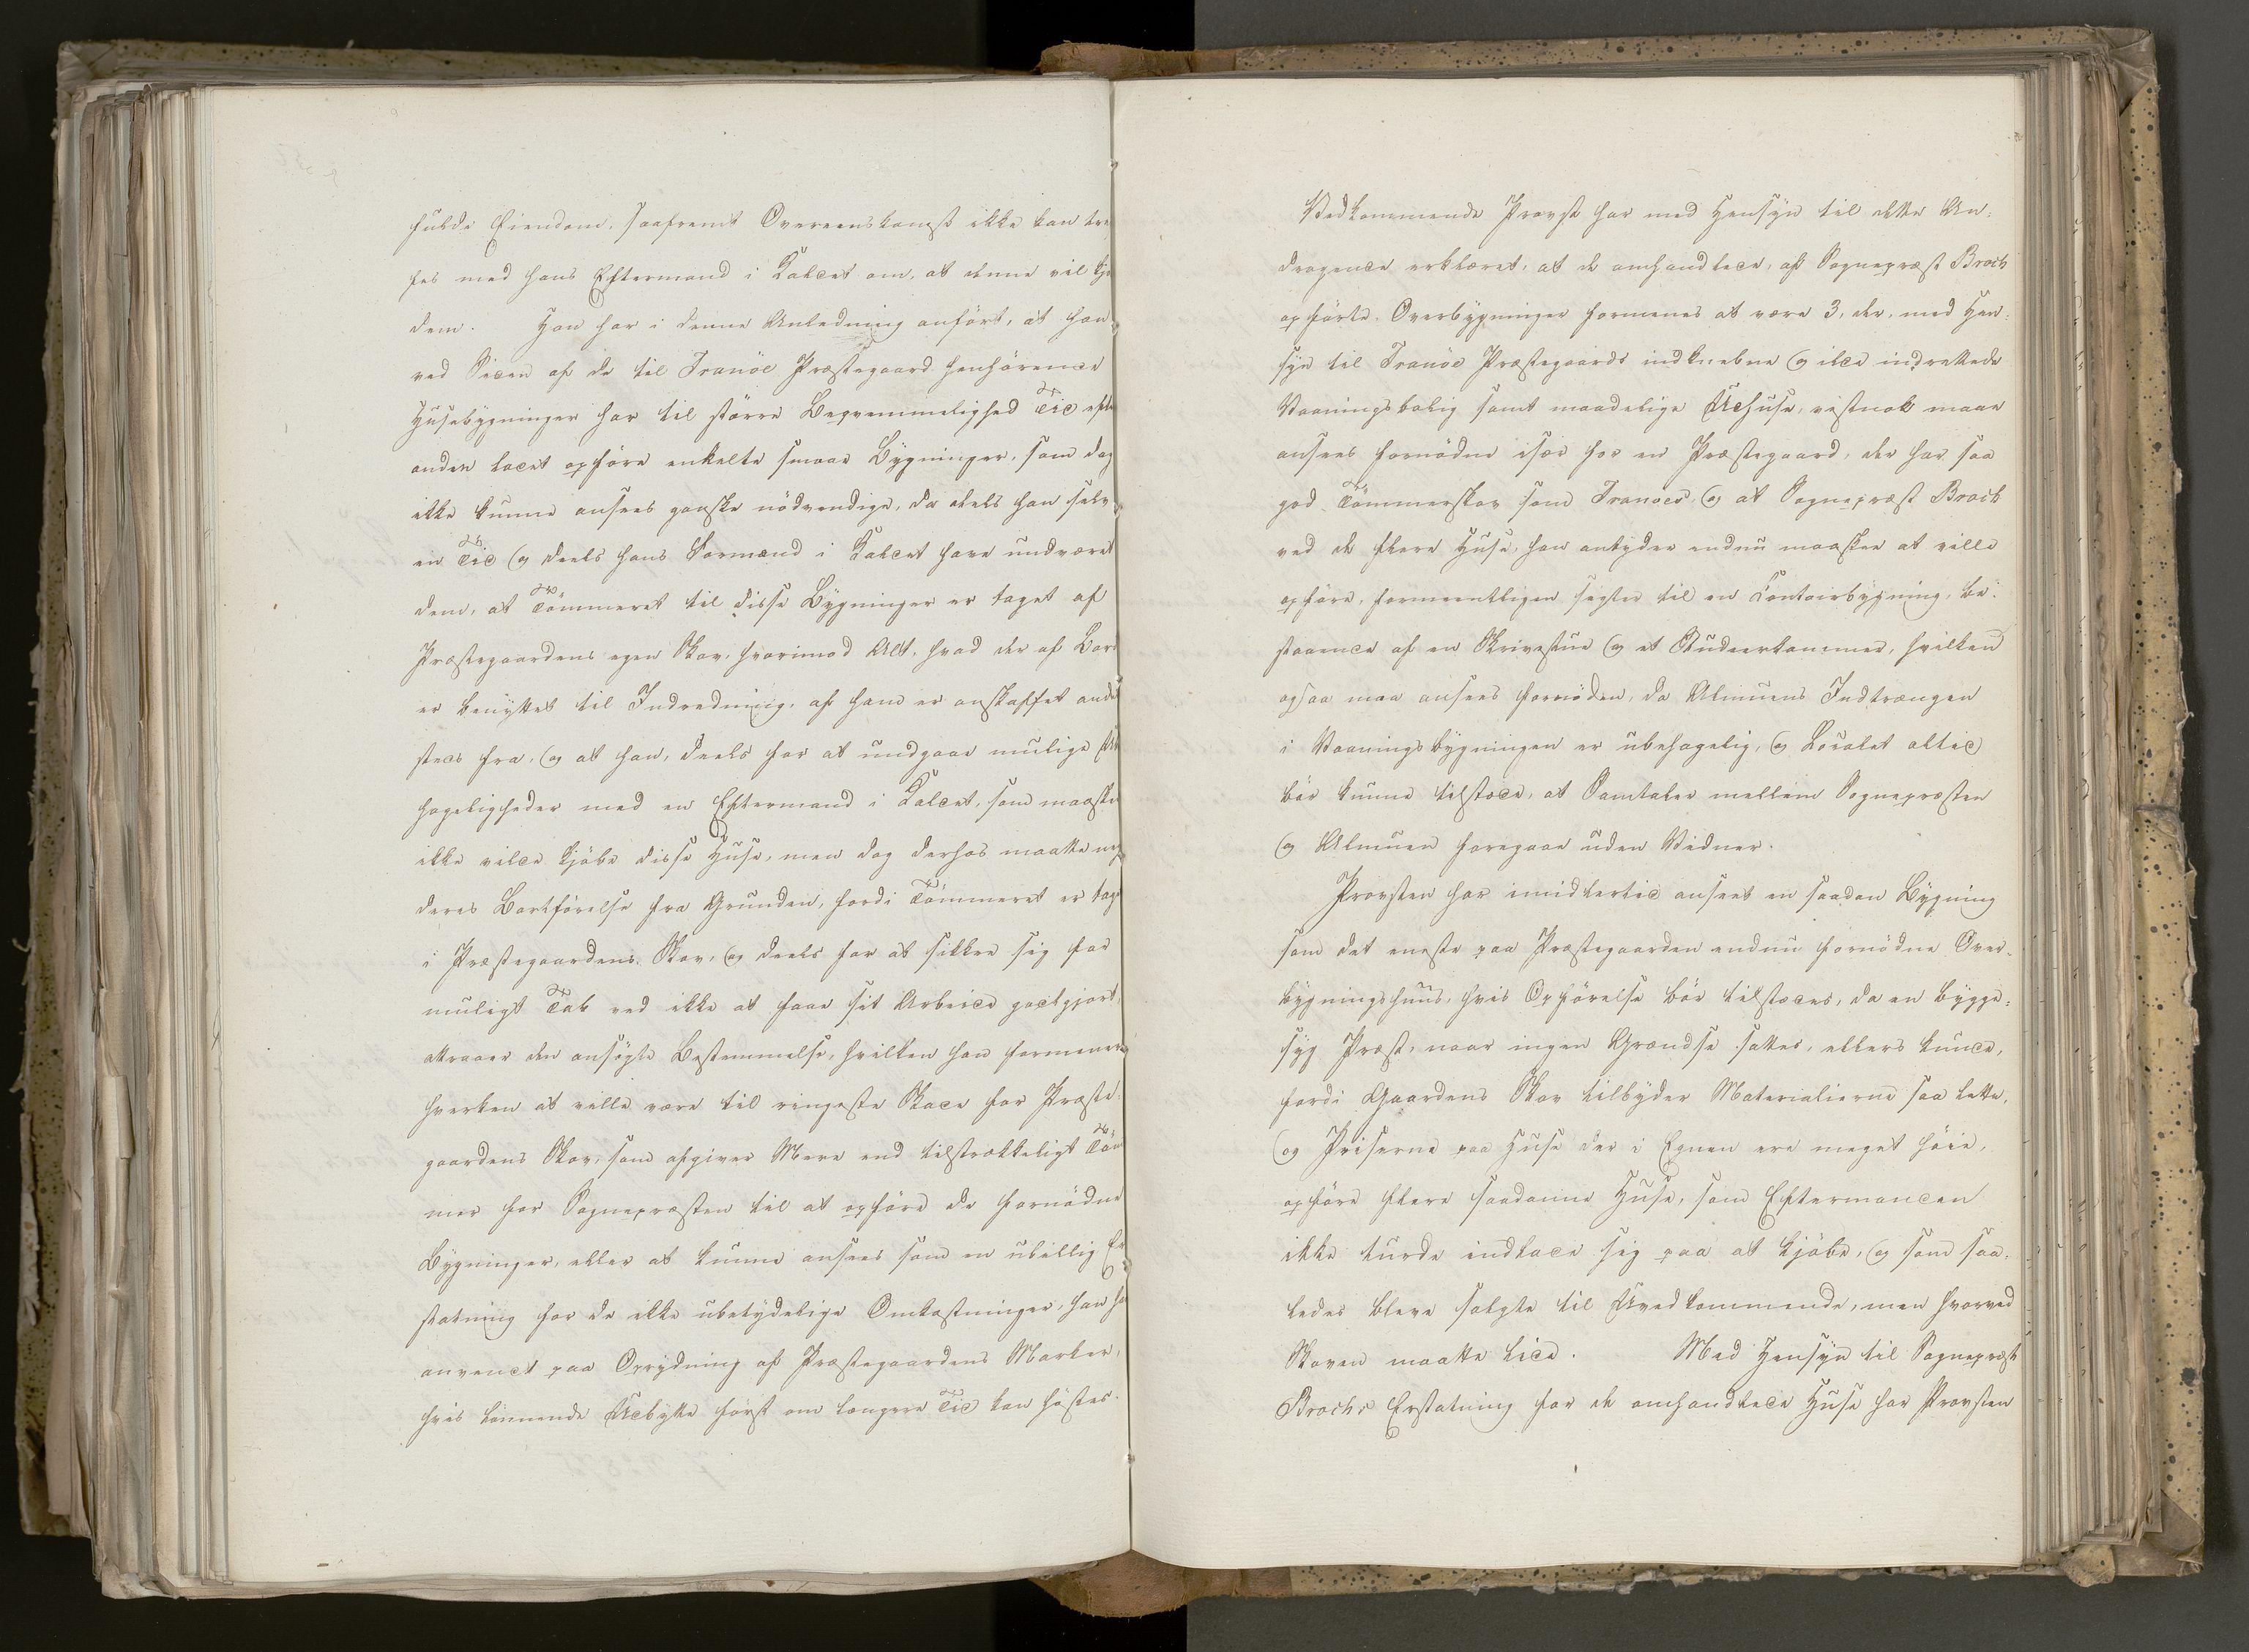 fulde Eiendom, saafremt Overeenskomst ikke kan tref
fes med hans Eftermand i Kaldet om, at denne vil kjø
dem. Han har i denne Anledning anført, at han
ved Siden af de til Tranöe Præstegaard henhørende
Husebygninger har til större Beqvemmelighed Tid efter
anden ladet opföre enkelte smaae Bygninger, som dog
ikke kunne ansees ganske nödvendige, da deels han selv
en Tid og deels hans Formænd i Kaldet have undværet
dem, at Tömmeret til disse Bygninger er taget af
Præstegaardens egen Skov, hvorimod Alt, hvad der af Bord
er benyttet til Indredning, af ham er anskaffet andet
steds fra, og at han, deels for at undgaae mulige Ube
hageligheder med en Eftermand i Kaldet, som maaskee
ikke vilde kjöbe disse Huse, men dog derhos maatte neg
deres Bortförelse fra Grunden, fordi Tömmeret er tag
i Præstegaardens Skov, og deels for at sikkre sig for
muligt Tab ved ikke at faae sit Arbeide godtgjort,
attraaer den ansögte Bestemmelse, hvilken han formener
hverken at ville være til ringeste Skade for Præste-
gaardens Skov, som afgiver Mere end tilstrækkeligt Töm
mer for Sognepræsten til at opföre de fornödne
Bygninger, eller at kunne ansees som en ubillig Er
statning for de ikke ubetydelige Omkostninger, han ha
anvendt paa Oprydning af Præstegaardens Marker,
hvis lönnende Udbytte först om længere Tid kan höstes.
Vedkommende Provst har med Hensyn til dette An-
dragende erklæret, at de omhandlede, af Sognepræst Broch
opförte Overbygninger formenes at være 3, der, med Hen-
syn til Tranöe Præstegaards indknebne og ilde indrettede
Vaaningsbolig samt maadelige Udhuse, vistnok maae
ansees fornödne især for en Præstegaard, der har saa
god Tömmerskov som Tranöes, og at Sognepræst Broch
ved de flere Huse, han antyder endnu maaskee at ville
opföre, formeentligen sigter til en Contoirbygning, be-
staaende af en Skrivestue og et Studeerkammer, hvilken
ogsaa maa ansees fornöden, da Almuens Indtrængen
i Vaaningsbygningen er ubehagelig, og Localet altid
bör kunne tilstæde, at Samtaler mellem Sognepræsten
og Almuen foregaae uden Vidner.
Provsten har imidlertid anseet en saadan Bygning
som det eneste paa Præstegaarden endnu fornödne Over-
bygningshuus, hvis Opförelse bör tilstædes, da en bygge-
syg Præst, naar ingen Grændse sattes, ellers kunde,
fordi Gaardens Skov tilbyder Materialierne saa lette,
og Priserne paa Huse der i Egnen ere meget höie,
opföre flere saadanne Huse, som Eftermanden
ikke turde indlade sig paa at kjöbe, og som saa-
ledes bleve solgte til Uvedkommende, men hvorved
Skoven maatte lide. Med Hensyn til Sognepræst
Brochs Erstatning for de omhandlede Huse har Provsten